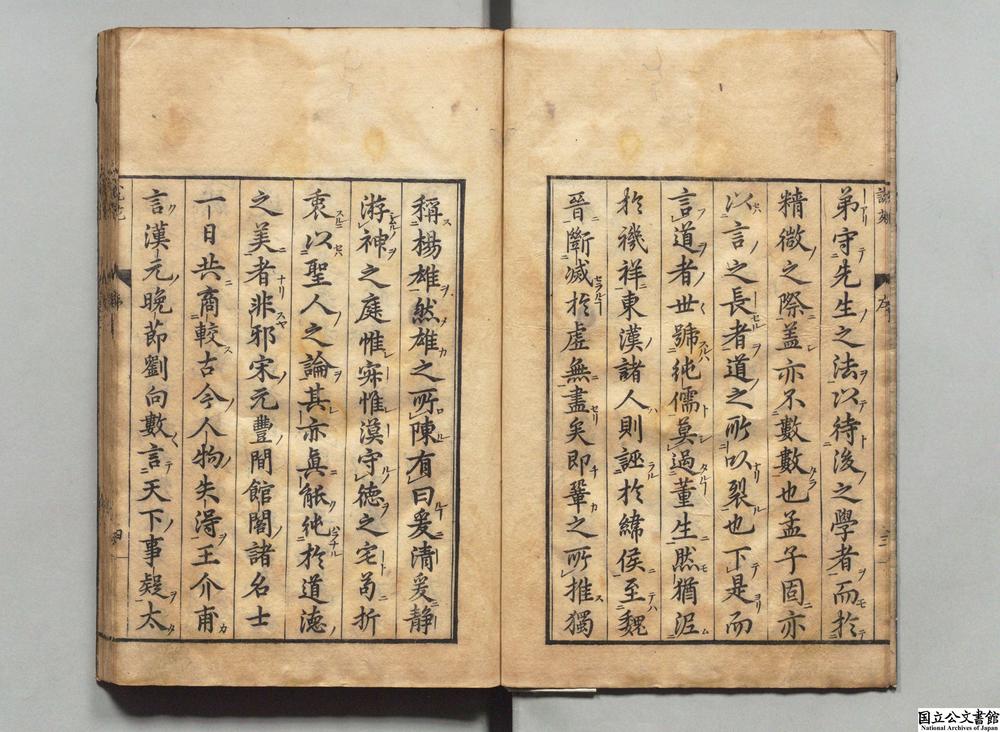 弟守先生之法以待後之學者而於
精微之際蓋亦不數數也孟子固亦
以言之長者道之所以裂也下是而
言道者世號純儒莫過董生然猶泥
於禨祥東漢諸人則誣於緯侯至魏
晉斷滅於虚無盡矣即鞏之所推獨
稱楊雄然雄之所陳有曰爰清爰静
游神之庭惟寂惟漠守德之宅苟折
衷以聖人之論其亦眞能純於道德
之美者非邪宋元豐間館閣諸名士
一日共商較古今人物失得王介甫
言漢元晚節劉向數言天下事疑太
国立公文書館
National Archives of Japan